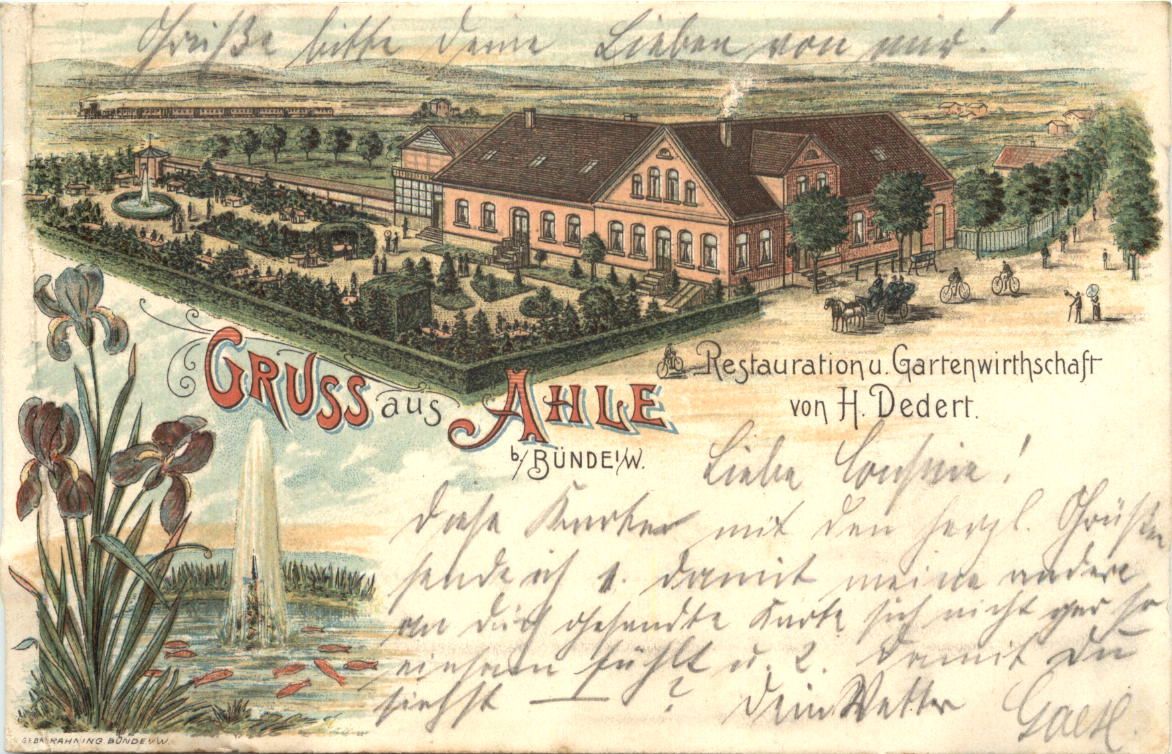 Grüße bitte deine Lieben von mir!
GRUSS aus AHLE
b/ BÜNDE i/W.
Restauration u. Gartenwirthschaft
von H. Dedert.
Liebe Cousine!
Diese Karte mit den herzl. Grüßen
sende ich 1. damit meine andere
an dich gesandte Karte sich nicht gar so
einsam fühlt u. 2. damit Du
siehst — ? Dein Vetter
GEBR. RAHNING. BÜNDE i/W.